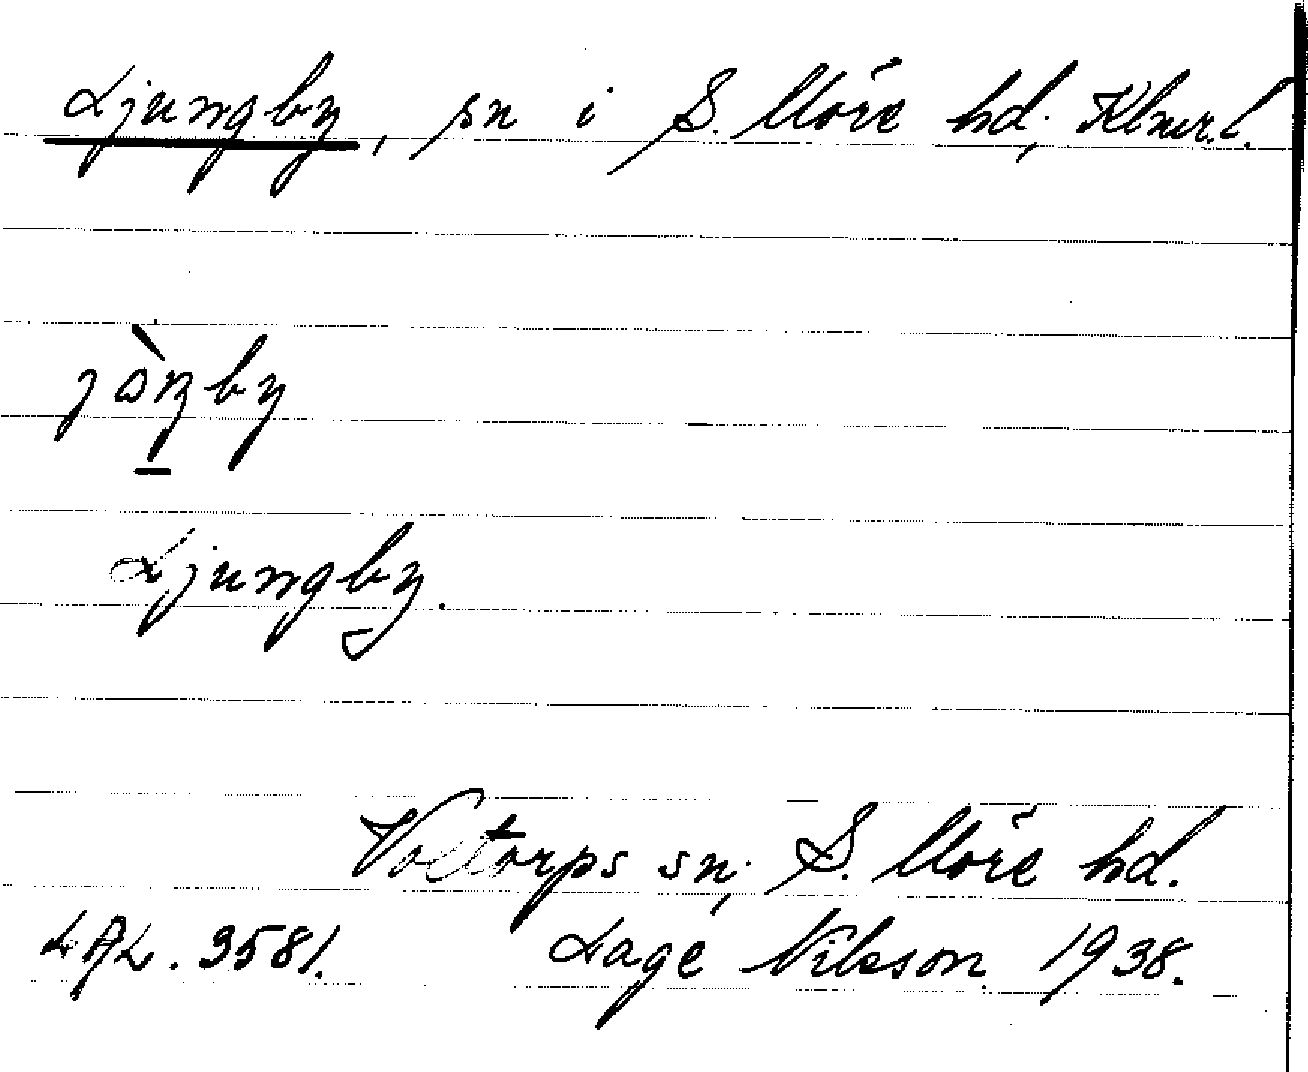 Ljungby, sn i S. Möre hd, Klmr.l.
jòŋby
Ljungby.
Voxtorps sn, S. Möre hd.
LAL. 3581. Lage Nilsson 1938.